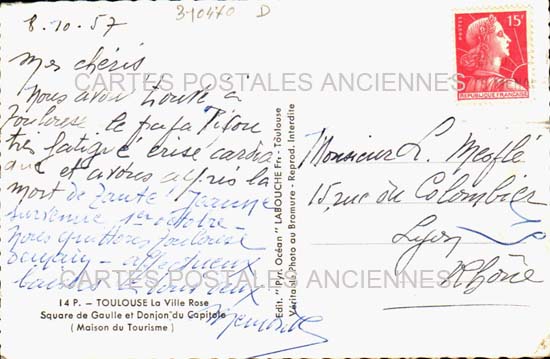 8.10.57
3-10470 D
Mes chéris
Nous avons trouvé à
Toulouse le papa Titou
très fatigué crise cardia
que et avons appris la
mort de tante Jeanne
survenue 1er octobre
Nous quittons Toulouse
affectueux
baisers à vous deux
14 P. — TOULOUSE La Ville Rose
Square de Gaulle et Donjon du Capitole
(Maison du Tourisme)
Edit. "Pyr. Océan" LABOUCHE Frs - Toulouse
Véritable Photo au Bromure - Reprod. Interdite
POSTES 15F
REPUBLIQUE FRANÇAISE
Monsieur L. Mesflé
15, rue du Colombier
Lyon
Rhône
CARTES POSTALES ANCIENNES
CARTES POSTALES ANCIENNES